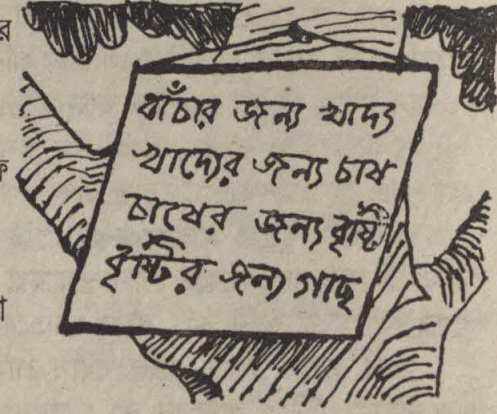 বাঁচার জন্য খাদ্য
খাদ্যের জন্য চাষ
চাষের জন্য বৃষ্টি
বৃষ্টির জন্য গাছ